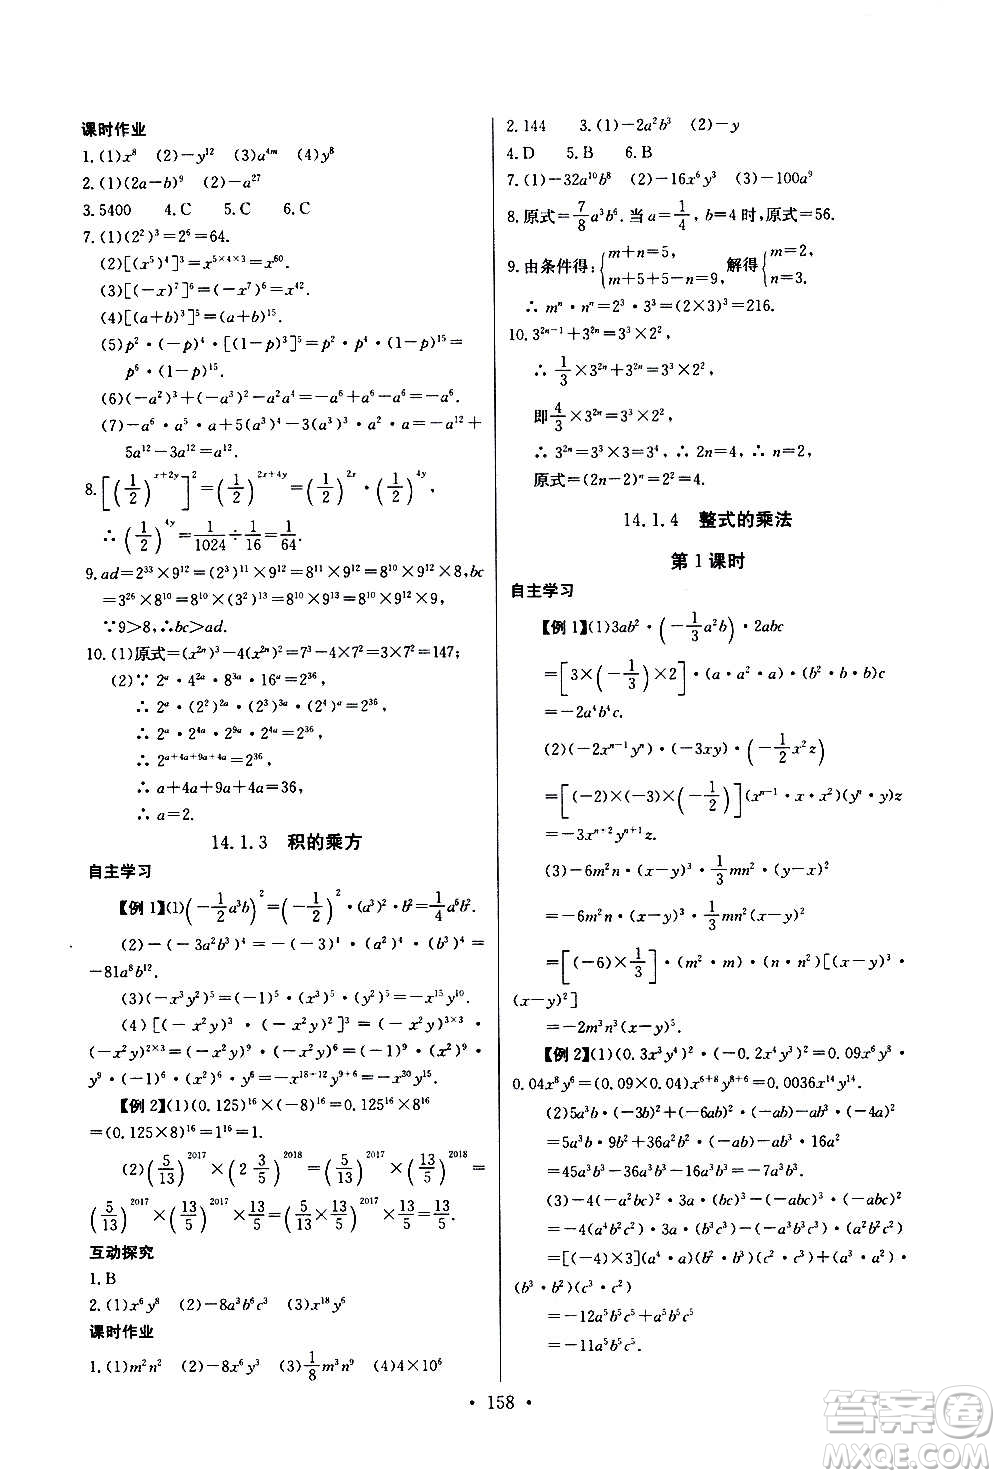 课时作业
1. (1)x⁸ (2)−y¹² (3)a⁴ᵐ (4)y⁸
2. (1)(2a−b)⁹ (2)−a²⁷
3. 5400 4. C 5. C 6. C
7. (1)(2²)³=2⁶=64.
(2)[(x⁵)⁴]³=x⁵ˣ⁴ˣ³=x⁶⁰.
(3)[(−x)⁷]⁶=(−x⁷)⁶=x⁴².
(4)[(a+b)³]⁵=(a+b)¹⁵.
(5)p²·(−p)⁴·[(1−p)³]⁵=p²·p⁴·(1−p)¹⁵=
p⁶·(1−p)¹⁵.
(6)(−a²)³+(−a³)²−a²a⁴=−a⁶+a⁶−a⁶=−a⁶.
(7)−a⁶·a⁵·a+5(a³)⁴−3(a³)³·a²·a=−a¹²+
5a¹²−3a¹²=a¹².
8. [(1/2)^(x+2y)]²=(1/2)^(2x+4y)=(1/2)^(2x)·(1/2)^(4y),
∴(1/2)^(4y)=1/1024÷1/16=1/64.
9. ad=2³³×9¹²=(2³)¹¹×9¹²=8¹¹×9¹²=8¹¹×9¹²×8,bc
=3²⁶×8¹⁰=(3²)¹³×8¹⁰=8¹⁰×9¹³=8¹⁰×9¹²×9,
∵9>8,∴bc>ad.
10. (1)原式=(x²ⁿ)³−4(x²ⁿ)²=7³−4×7²=3×7²=147;
(2)∵2ᵃ·4²ᵃ·8³ᵃ·16ᵃ=2³⁶,
∴2ᵃ·(2²)²ᵃ·(2³)³ᵃ·(2⁴)ᵃ=2³⁶,
∴2ᵃ·2⁴ᵃ·2⁹ᵃ·2⁴ᵃ=2³⁶,
∴2^(a+4a+9a+4a)=2³⁶,
∴a+4a+9a+4a=36,
∴a=2.
14.1.3 积的乘方
自主学习
【例1】(1)(−1/2a³b)²=(−1/2)²·(a³)²·b²=1/4a⁶b².
(2)−(−3a²b³)⁴=−(−3)⁴·(a²)⁴·(b³)⁴=
−81a⁸b¹².
(3)(−x³y²)⁵=(−1)⁵·(x³)⁵·(y²)⁵=−x¹⁵y¹⁰.
(4)[(−x²y)³·(−x²y)²]³=(−x²y)³ˣ³·
(−x²y)²ˣ³=(−x²y)⁹·(−x²y)⁶=−x¹⁸·
y⁹·x¹²·y⁶=−x¹⁸⁺¹²y⁹⁺⁶=−x³⁰y¹⁵.
【例2】(1)(0.125)¹⁶×(−8)¹⁶=0.125¹⁶×8¹⁶
=(0.125×8)¹⁶=1¹⁶=1.
(2)(5/13)²⁰¹⁷×(2 3/5)²⁰¹⁸=(5/13)²⁰¹⁷×(13/5)²⁰¹⁸=
(5/13)²⁰¹⁷×(13/5)²⁰¹⁷×13/5=(5/13×13/5)²⁰¹⁷×13/5=13/5.
互动探究
1. B
2. (1)x⁶y⁸ (2)−8a³b⁶c³ (3)x¹⁸y⁶
课时作业
1. (1)m²n² (2)−8x⁶y³ (3)1/8m³n⁹ (4)4×10⁶
2. 144 3. (1)−2a²b³ (2)−y
4. D 5. B 6. B
7. (1)−32a¹⁰b⁸ (2)−16x⁶y³ (3)−100a⁹
8. 原式=7/8a³b⁶.当a=1/4,b=4时,原式=56.
9. 由条件得:{m+n=5, m+5+5−n=9, 解得{m=2, n=3.
∴mⁿ·nⁿ=2³·3³=(2×3)³=216.
10. 3²ⁿ⁻¹+3²ⁿ=3³×2²,
∴1/3×3²ⁿ+3²ⁿ=3³×2²,
即4/3×3²ⁿ=3³×2²,
∴3²ⁿ=3³×3=3⁴,∴2n=4,∴n=2,
原式=(2n−2)ⁿ=2²=4.
14.1.4 整式的乘法
第1课时
自主学习
【例1】(1)3ab²·(−1/3a²b)·2abc
=[3×(−1/3)×2]·(a·a²·a)·(b²·b·b)c
=−2a⁴b⁴c.
(2)(−2xⁿ⁻¹yⁿ)·(−3xy)·(−1/2x²z)
=[(−2)×(−3)×(−1/2)](xⁿ⁻¹·x·x²)(yⁿ·y)z
=−3xⁿ⁺²yⁿ⁺¹z.
(3)−6m²n·(x−y)³·1/3mn²·(y−x)²
=−6m²n·(x−y)³·1/3mn²(x−y)²
=[(−6)×1/3]·(m²·m)·(n·n²)[(x−y)³·
(x−y)²]
=−2m³n³(x−y)⁵.
【例2】(1)(0.3x³y⁴)²·(−0.2x⁴y³)²=0.09x⁶y⁸·
0.04x⁸y⁶=(0.09×0.04)x⁶⁺⁸y⁸⁺⁶=0.0036x¹⁴y¹⁴.
(2)5a³b·(−3b)²+(−6ab)²·(−ab)−ab³·(−4a)²
=5a³b·9b²+36a²b²·(−ab)−ab³·16a²
=45a³b³−36a³b³−16a³b³=−7a³b³.
(3)−4(−a²bc)²·3a·(bc)³−(−abc)³·(−abc)²
=−4(a⁴b²c²)·3a·(b³c³)−(−a³b³c³)(a²b²c²)
=[(−4)×3](a⁴·a)(b²·b³)(c²·c³)+(a³·a²)·
(b³·b²)(c³·c²)
=−12a⁵b⁵c⁵+a⁵b⁵c⁵
=−11a⁵b⁵c⁵.
• 158 •
答案圈
MXQE.COM